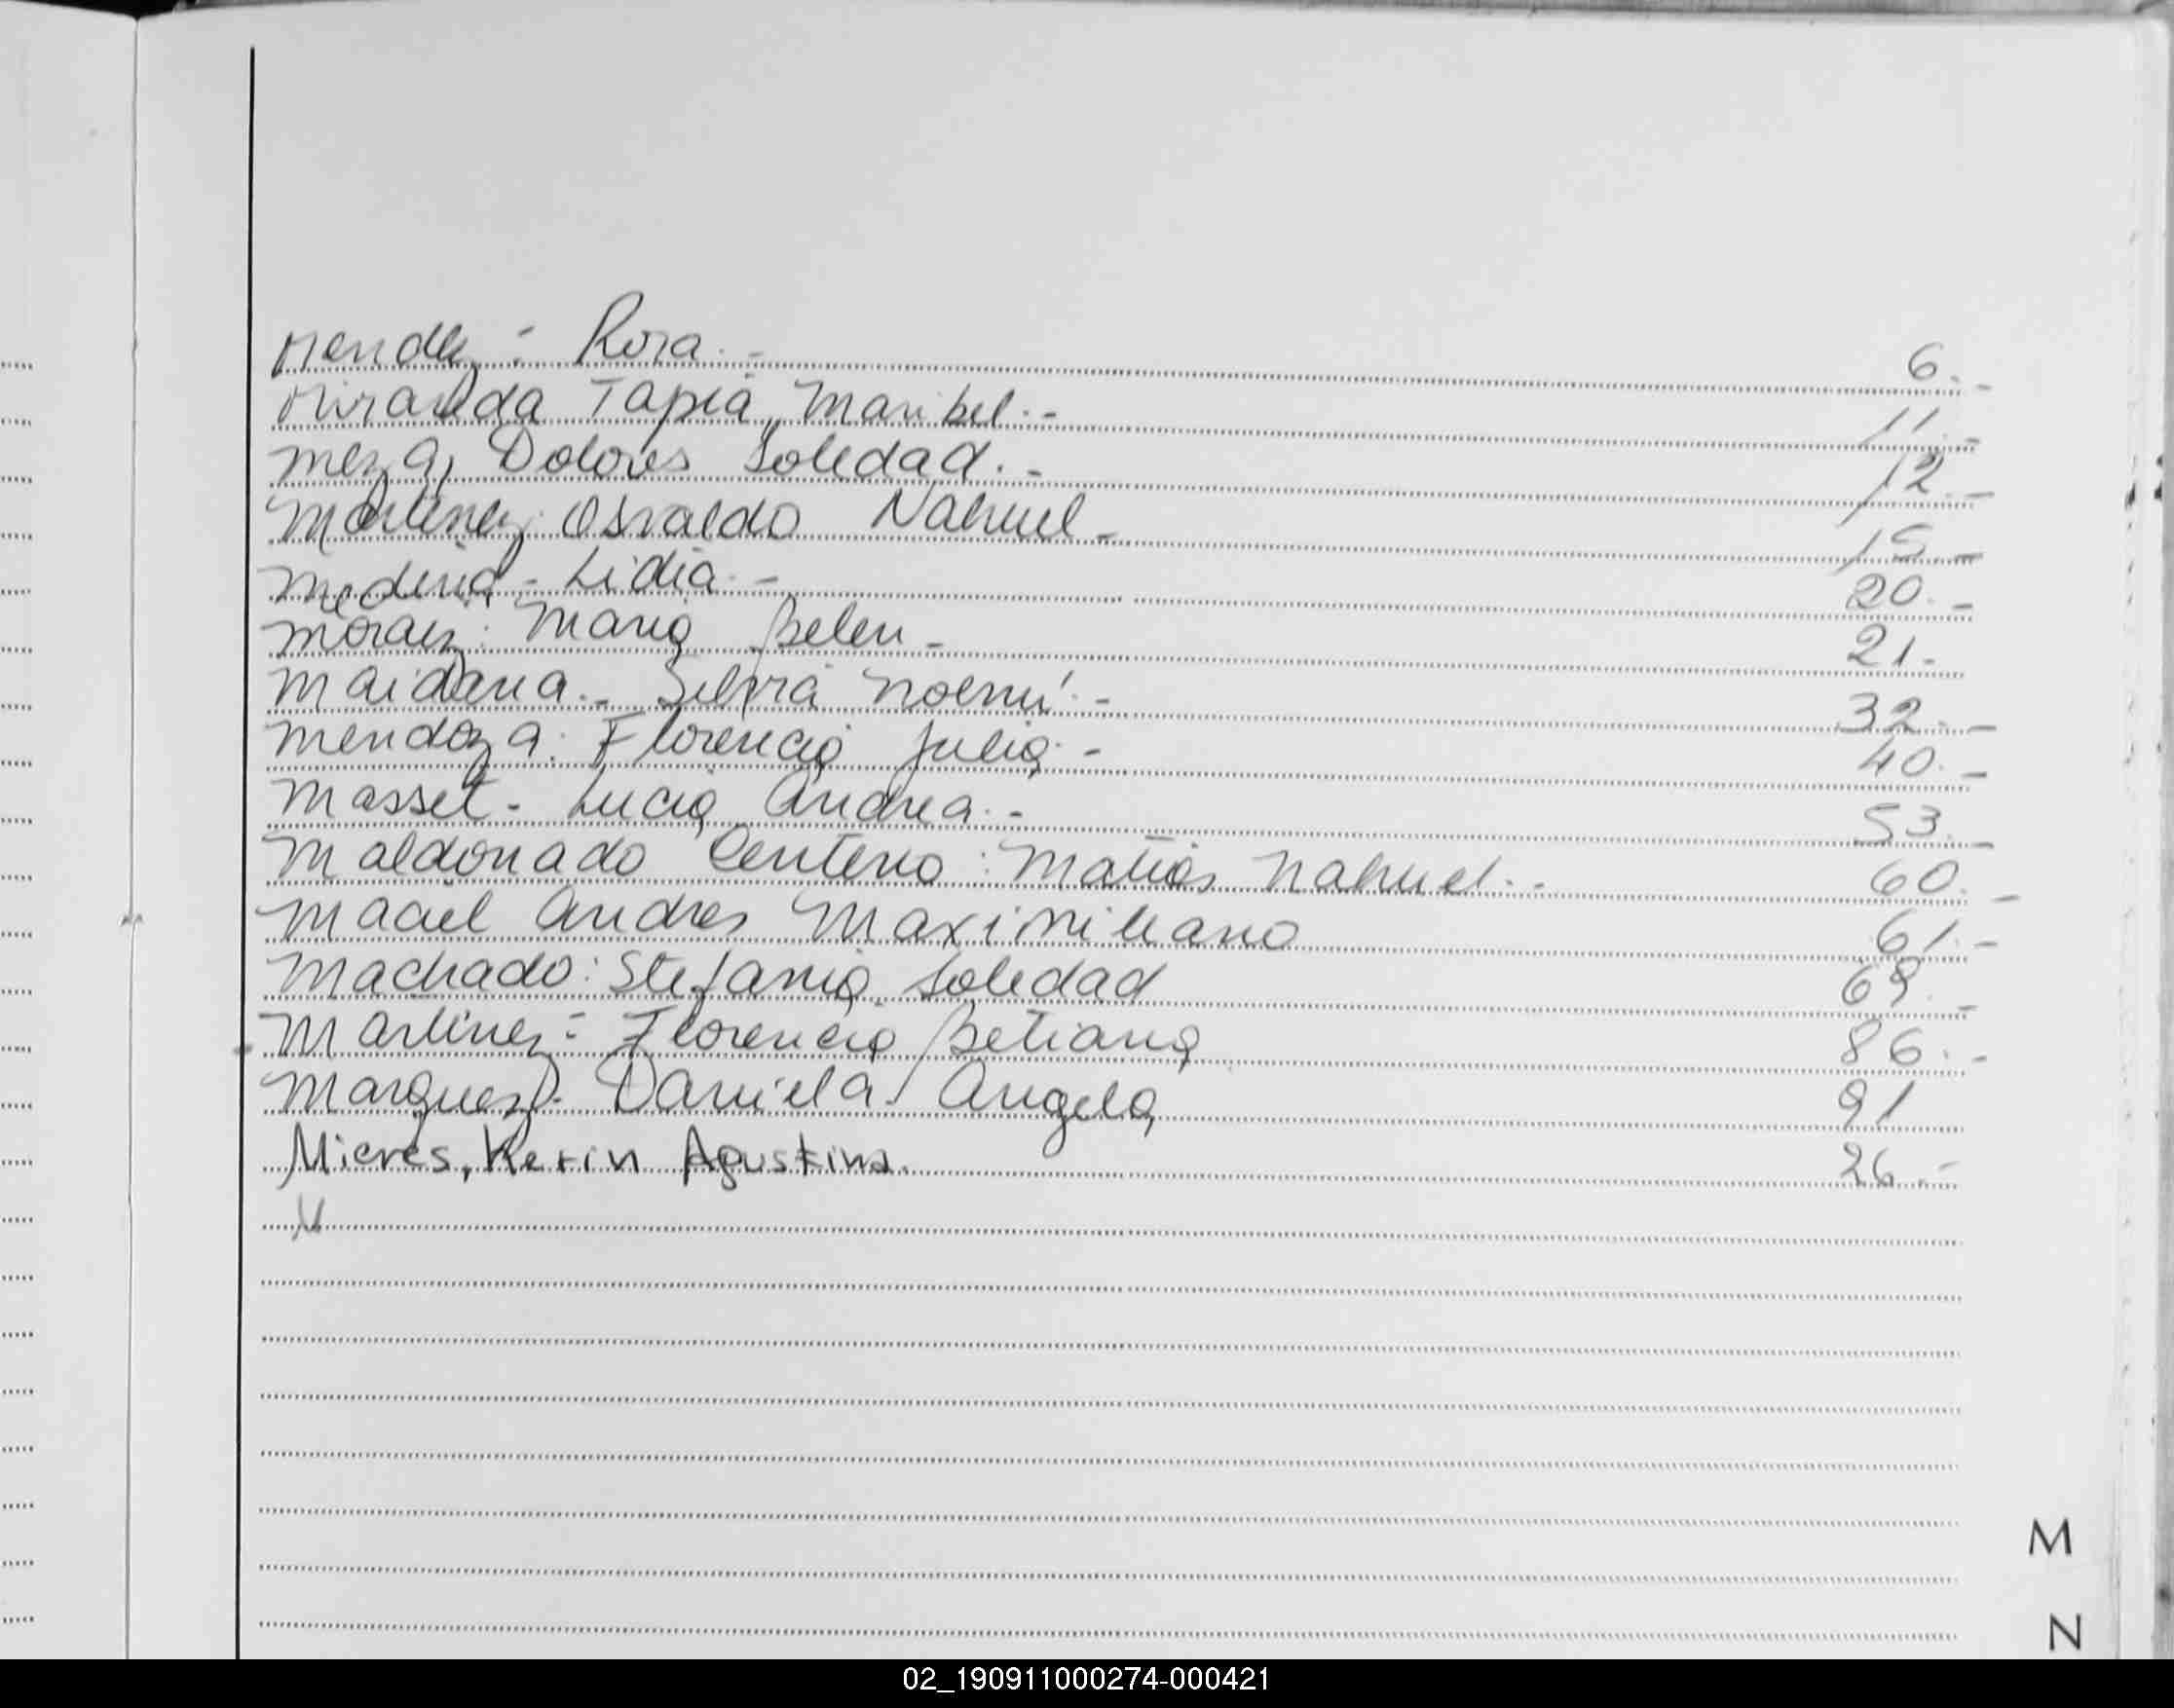 Mendez: Rosa.- 6.-
Miranda Tapia, Maribel.- 11.-
Meza, Dolores Soledad.- 12.-
Martinez: Osvaldo Nahuel- 15.-
Medina- Lidia.- 20.-
Moraez: Maria Belen- 21.-
Maidana.- Silvia Noemí.- 32.-
Mendoza: Florencia Julia.- 40.-
Masset- Lucia Andrea.- 53.-
Maldonado Centeno: Matias Nahuel.- 60.-
Maciel Andres Maximiliano 61.-
Machado: Stefania Soledad 69.-
Martinez- Florencia Betiana 86.-
Marquez- Daniela Angela 91
Mieres, Kevin Agustina. 26.-
M
M
N
02_190911000274-000421